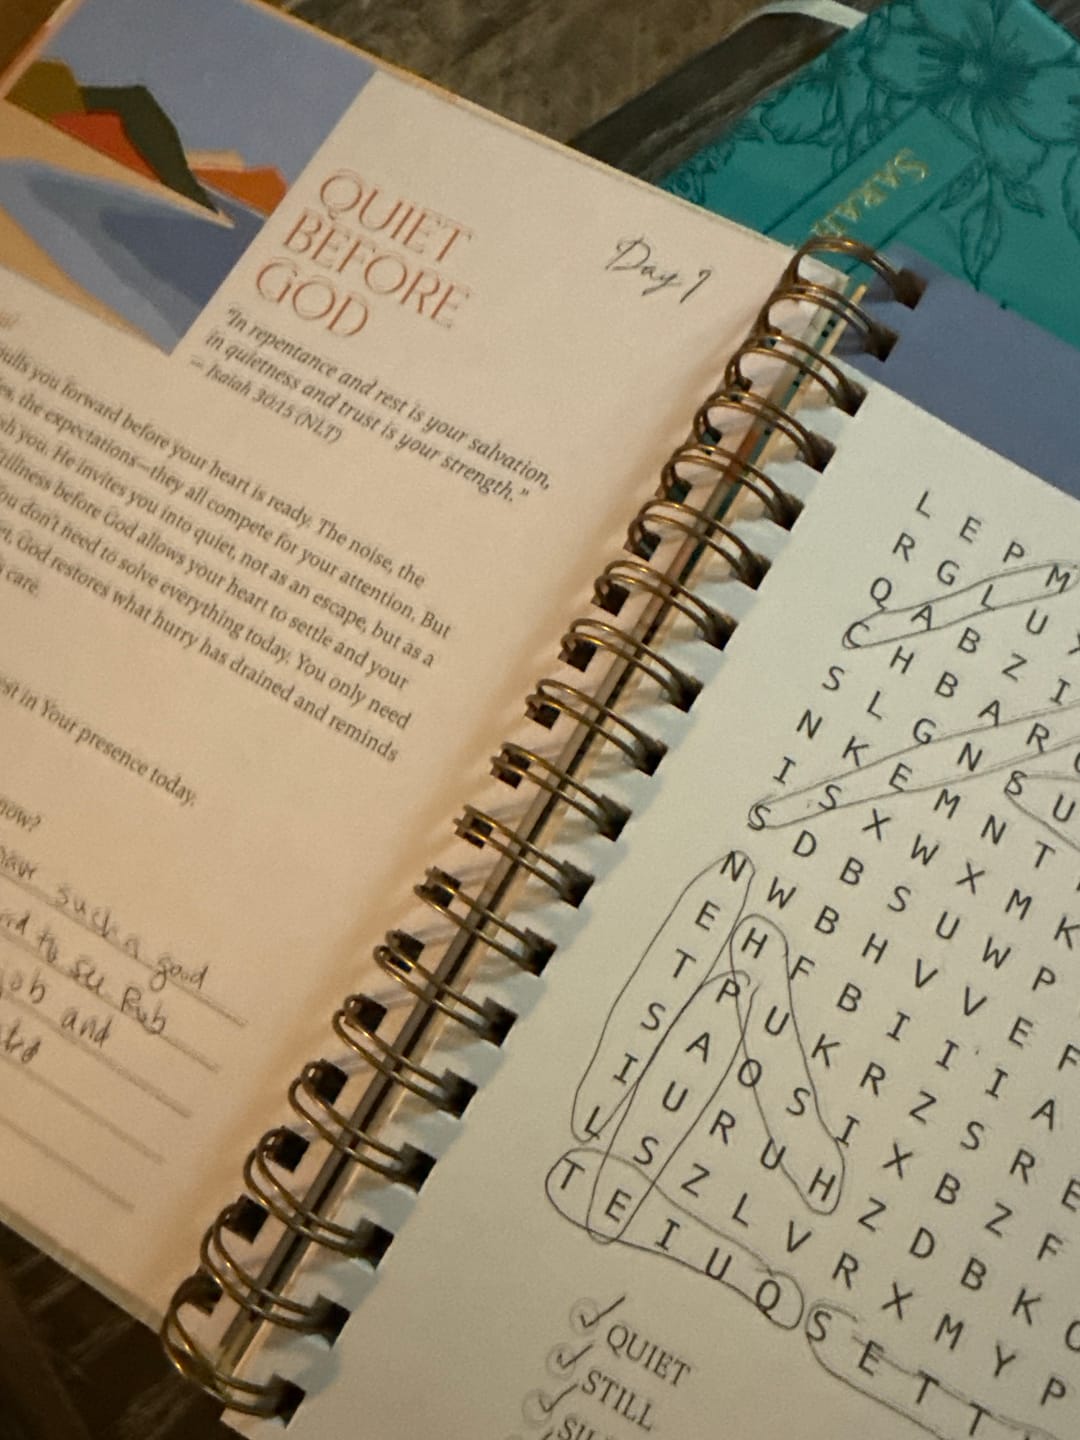 SARAH
QUIET
BEFORE
GOD
Day 1
"In repentance and rest is your salvation,
in quietness and trust is your strength."
— Isaiah 30:15 (NLT)
you forward before your heart is ready. The noise, the
the expectations—they all compete for your attention. But
you. He invites you into quiet, not as an escape, but as a
before God allows your heart to settle and your
don't need to solve everything today. You only need
God restores what hurry has drained and reminds
care.
in Your presence today.
now?
such a good
to see Rob
job and
L E P M
R G L U X
Q A B Z I
C H B A R
S L G N S U
N K E M N T
I S X W X M K
S D B S U W P
N W B H V V E F
E H F B I I I A
T P U K R Z S R E
S A O S I X B Z F
I U R U H Z D B K
L S Z L V R X M Y P
T E I U Q S E T T
QUIET
STILL